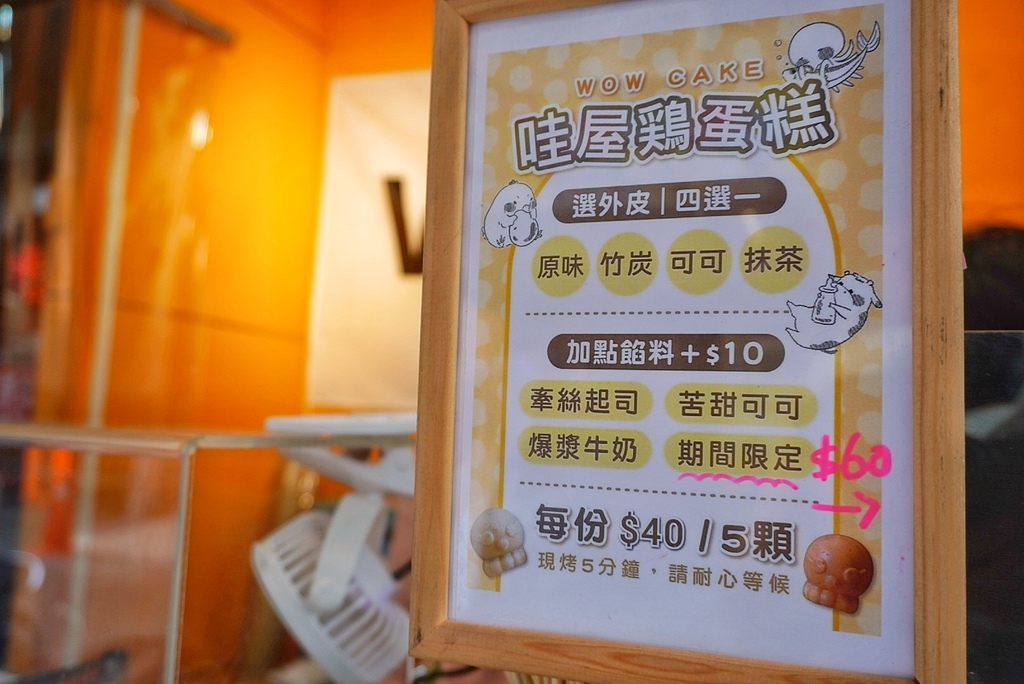 WOW CAKE
哇屋鶏蛋糕
選外皮|四選一
原味 竹炭 可可 抹茶
加點餡料+$10
牽絲起司 苦甜可可
爆漿牛奶 期間限定 $60 →
每份 $40 / 5顆
現烤5分鐘,請耐心等候